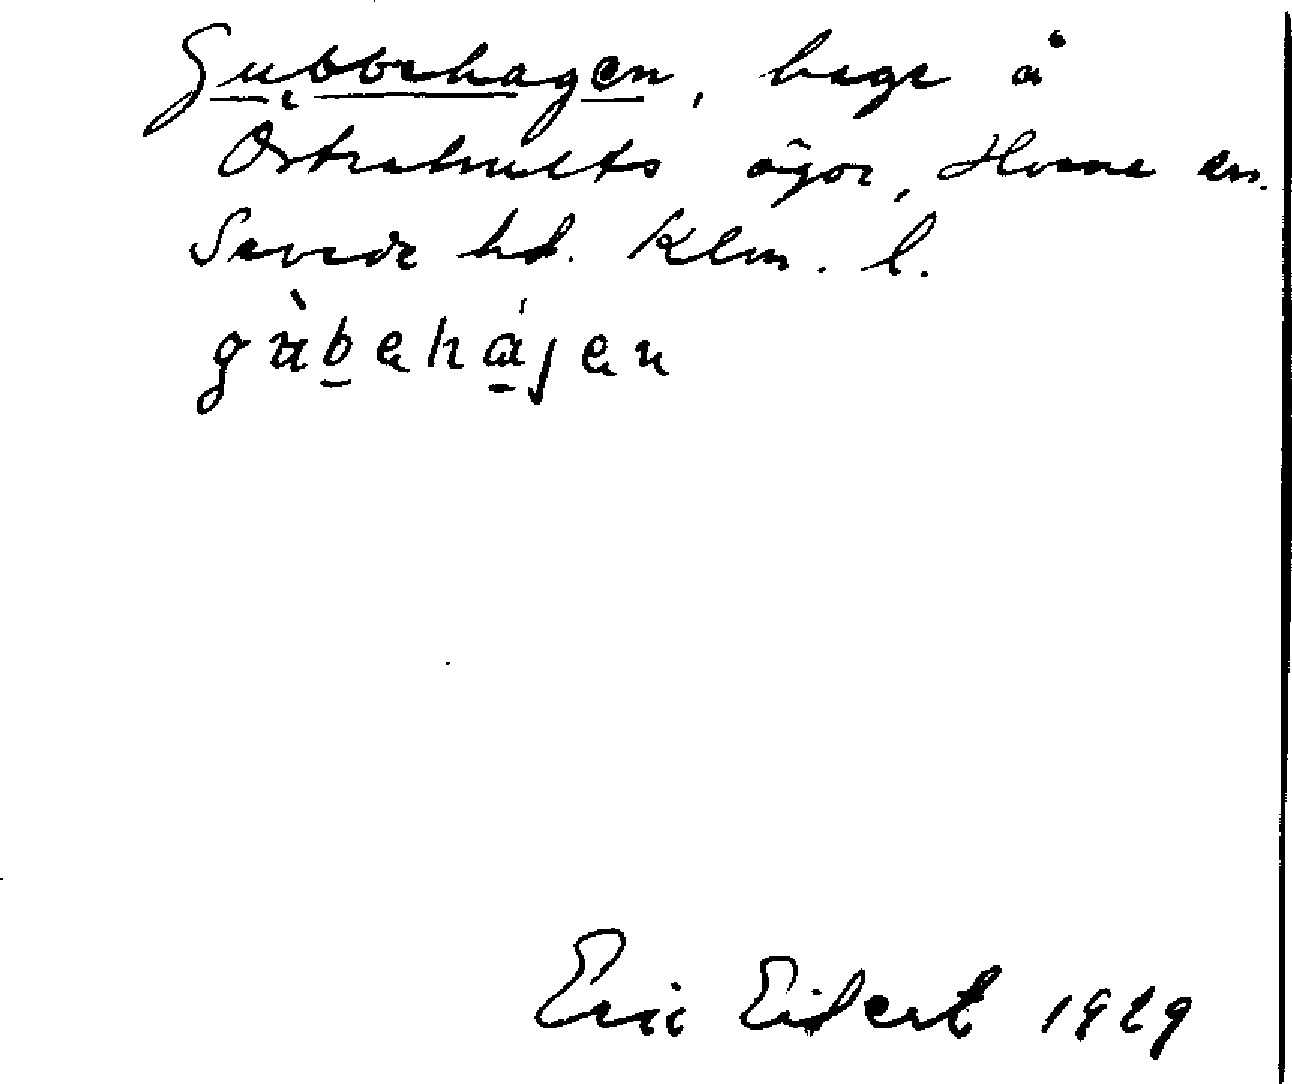 Gubbehagen, hage å
Östrahults ägor, Horne sn.
Sevede hd. Klm. l.
gùbehájen
Eric Eifert 1929